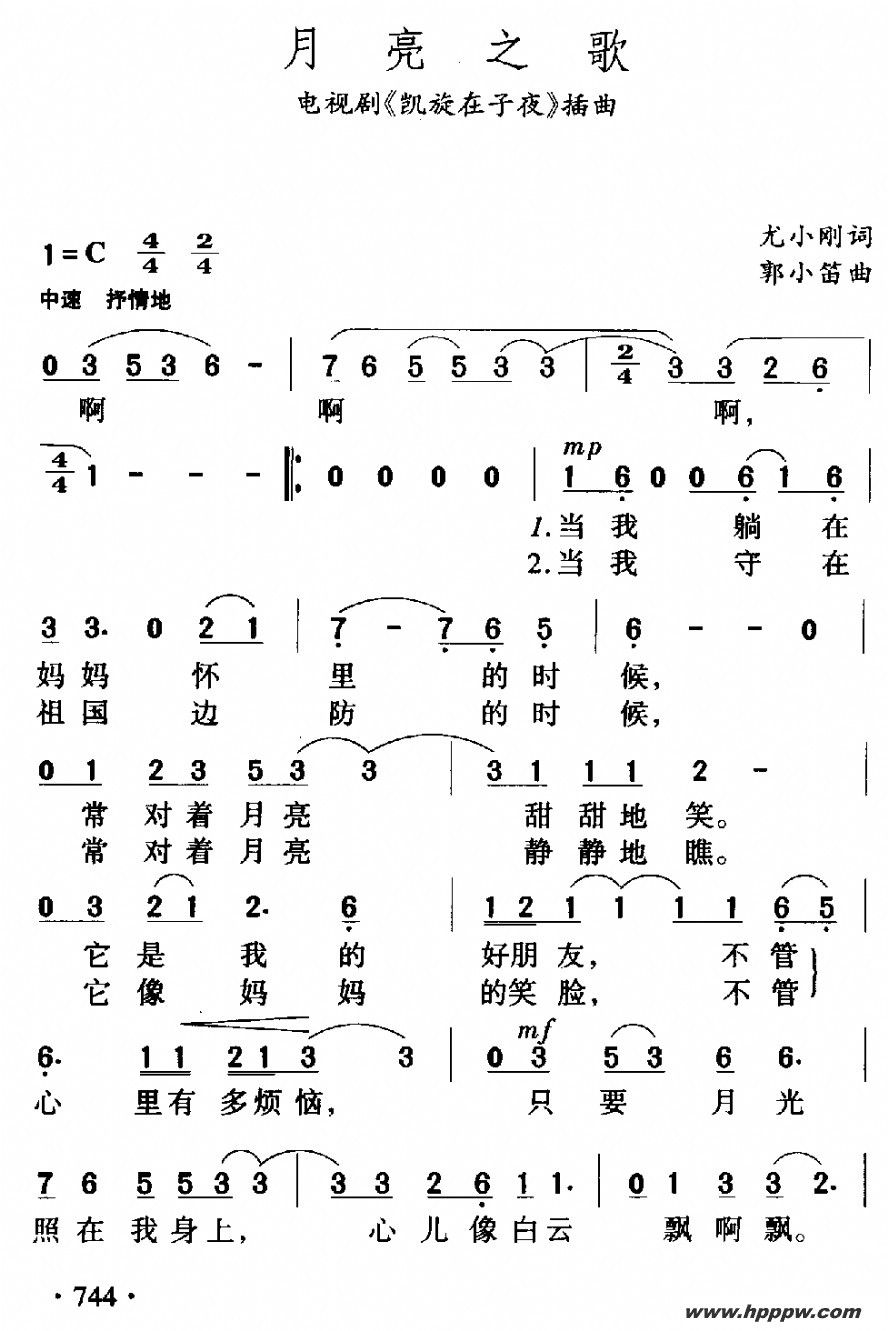 月亮之歌
电视剧《凯旋在子夜》插曲
1=C 4/4 2/4
尤小刚词
郭小笛曲
中速 抒情地
0 3 5 3 6 - | 7 6 5 5 3 3 | 2/4 3 3 2 6 |
啊 啊 啊,
4/4 1 - - - ‖: 0 0 0 0 | mp 1 6 0 0 6 1 6 |
1.当我 躺 在
2.当我 守 在
3 3. 0 2 1 | 7 - 7 6 5 | 6 - - 0 |
妈妈 怀 里 的时 候,
祖国 边 防 的时 候,
0 1 2 3 5 3 3 | 3 1 1 1 2 - |
常 对着月亮 甜甜地 笑。
常 对着月亮 静静地 瞧。
0 3 2 1 2. 6 | 1 2 1 1 1 1 6 5 |
它是 我 的 好朋友, 不管
它像 妈 妈 的笑脸, 不管
6. 1 1 2 1 3 3 | mf 0 3 5 3 6 6. |
心 里有多烦恼, 只 要 月 光
7 6 5 5 3 3 | 3 3 2 6 1 1. | 0 1 3 3 2. |
照在我身上, 心儿像白云 飘啊飘。
·744·
www.hpppw.com